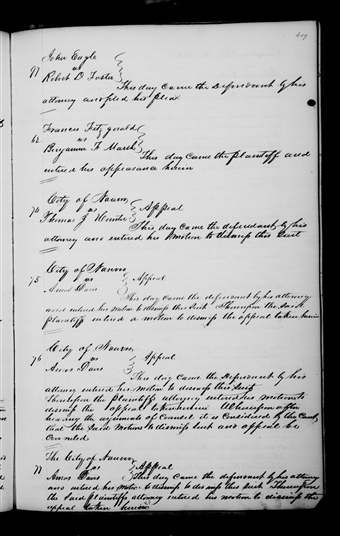 John Eagle
71 vs
Robert D Foster
This day came the Defendant by his
attorney and filed his plea
Francis Fitzgerald
62 vs
Benjamin F Marsh
This day came the plaintiff and
entered his appearance herein
City of Nauvoo
74 vs Appeal
Thomas J Hunter
This day came the defendant by his
attorney and entered his motion to dismiss this suit
City of Nauvoo
75 vs Appeal
Amos Davis
This day came the defendant by his attorney
and entered his motion to dismiss this suit Thereupon the said
plaintiff entered a motion to dismiss the appeal taken herein
City of Nauvoo
76 vs Appeal
Amos Davis
This day came the Defendant by his
attorney entered his motion to dismiss this suit
Thereupon the plaintiffs attorney entered his motion to
dismiss the appeal taken herein Whereupon after
hearing the arguments of Counsel it is Considered by the Court
that the said Motions to dismiss suit and appeal be
The City of Nauvoo
77 vs Appeal
Amos Davis This day came the defendant by his attorney
and entered his motion to dismiss this suit Thereupon
the said plaintiffs attorney entered his motion to dismiss the
appeal taken herein